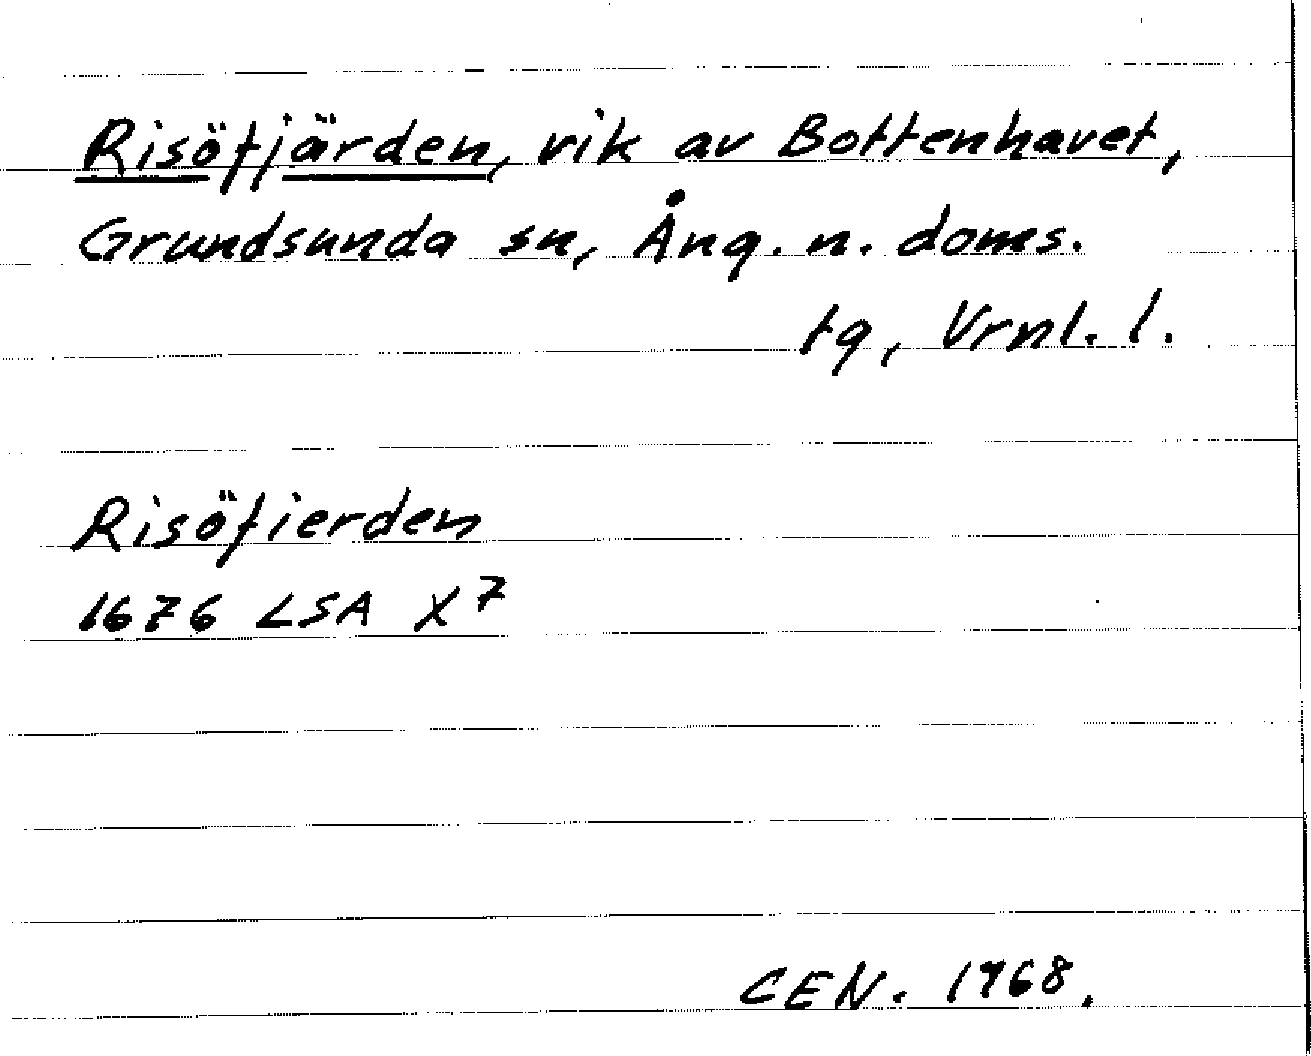 Risöfjärden, vik av Bottenhavet,
Grundsunda sn, Ång. n. doms.
tg, Vrnl. l.
Risöfierden
1676 LSA X 7
CEN. 1968.